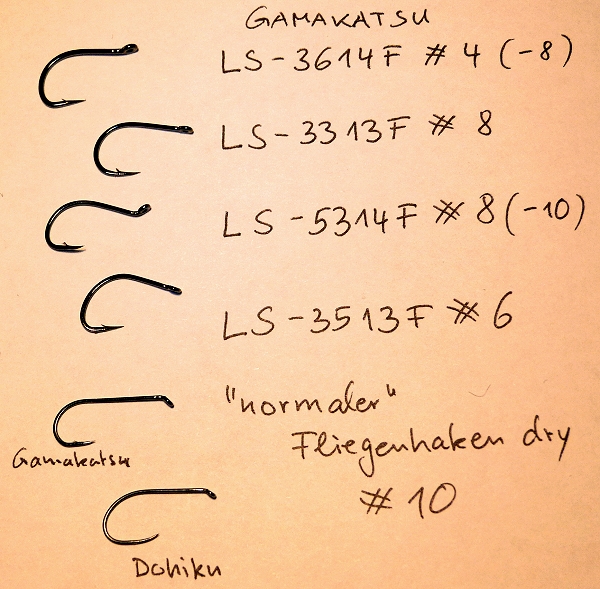 GAMAKATSU
LS-3614F # 4 (-8)
LS-3313F # 8
LS-5314F # 8 (-10)
LS-3513F # 6
"normaler"
Fliegenhaken dry
# 10
Gamakatsu
Dohiku